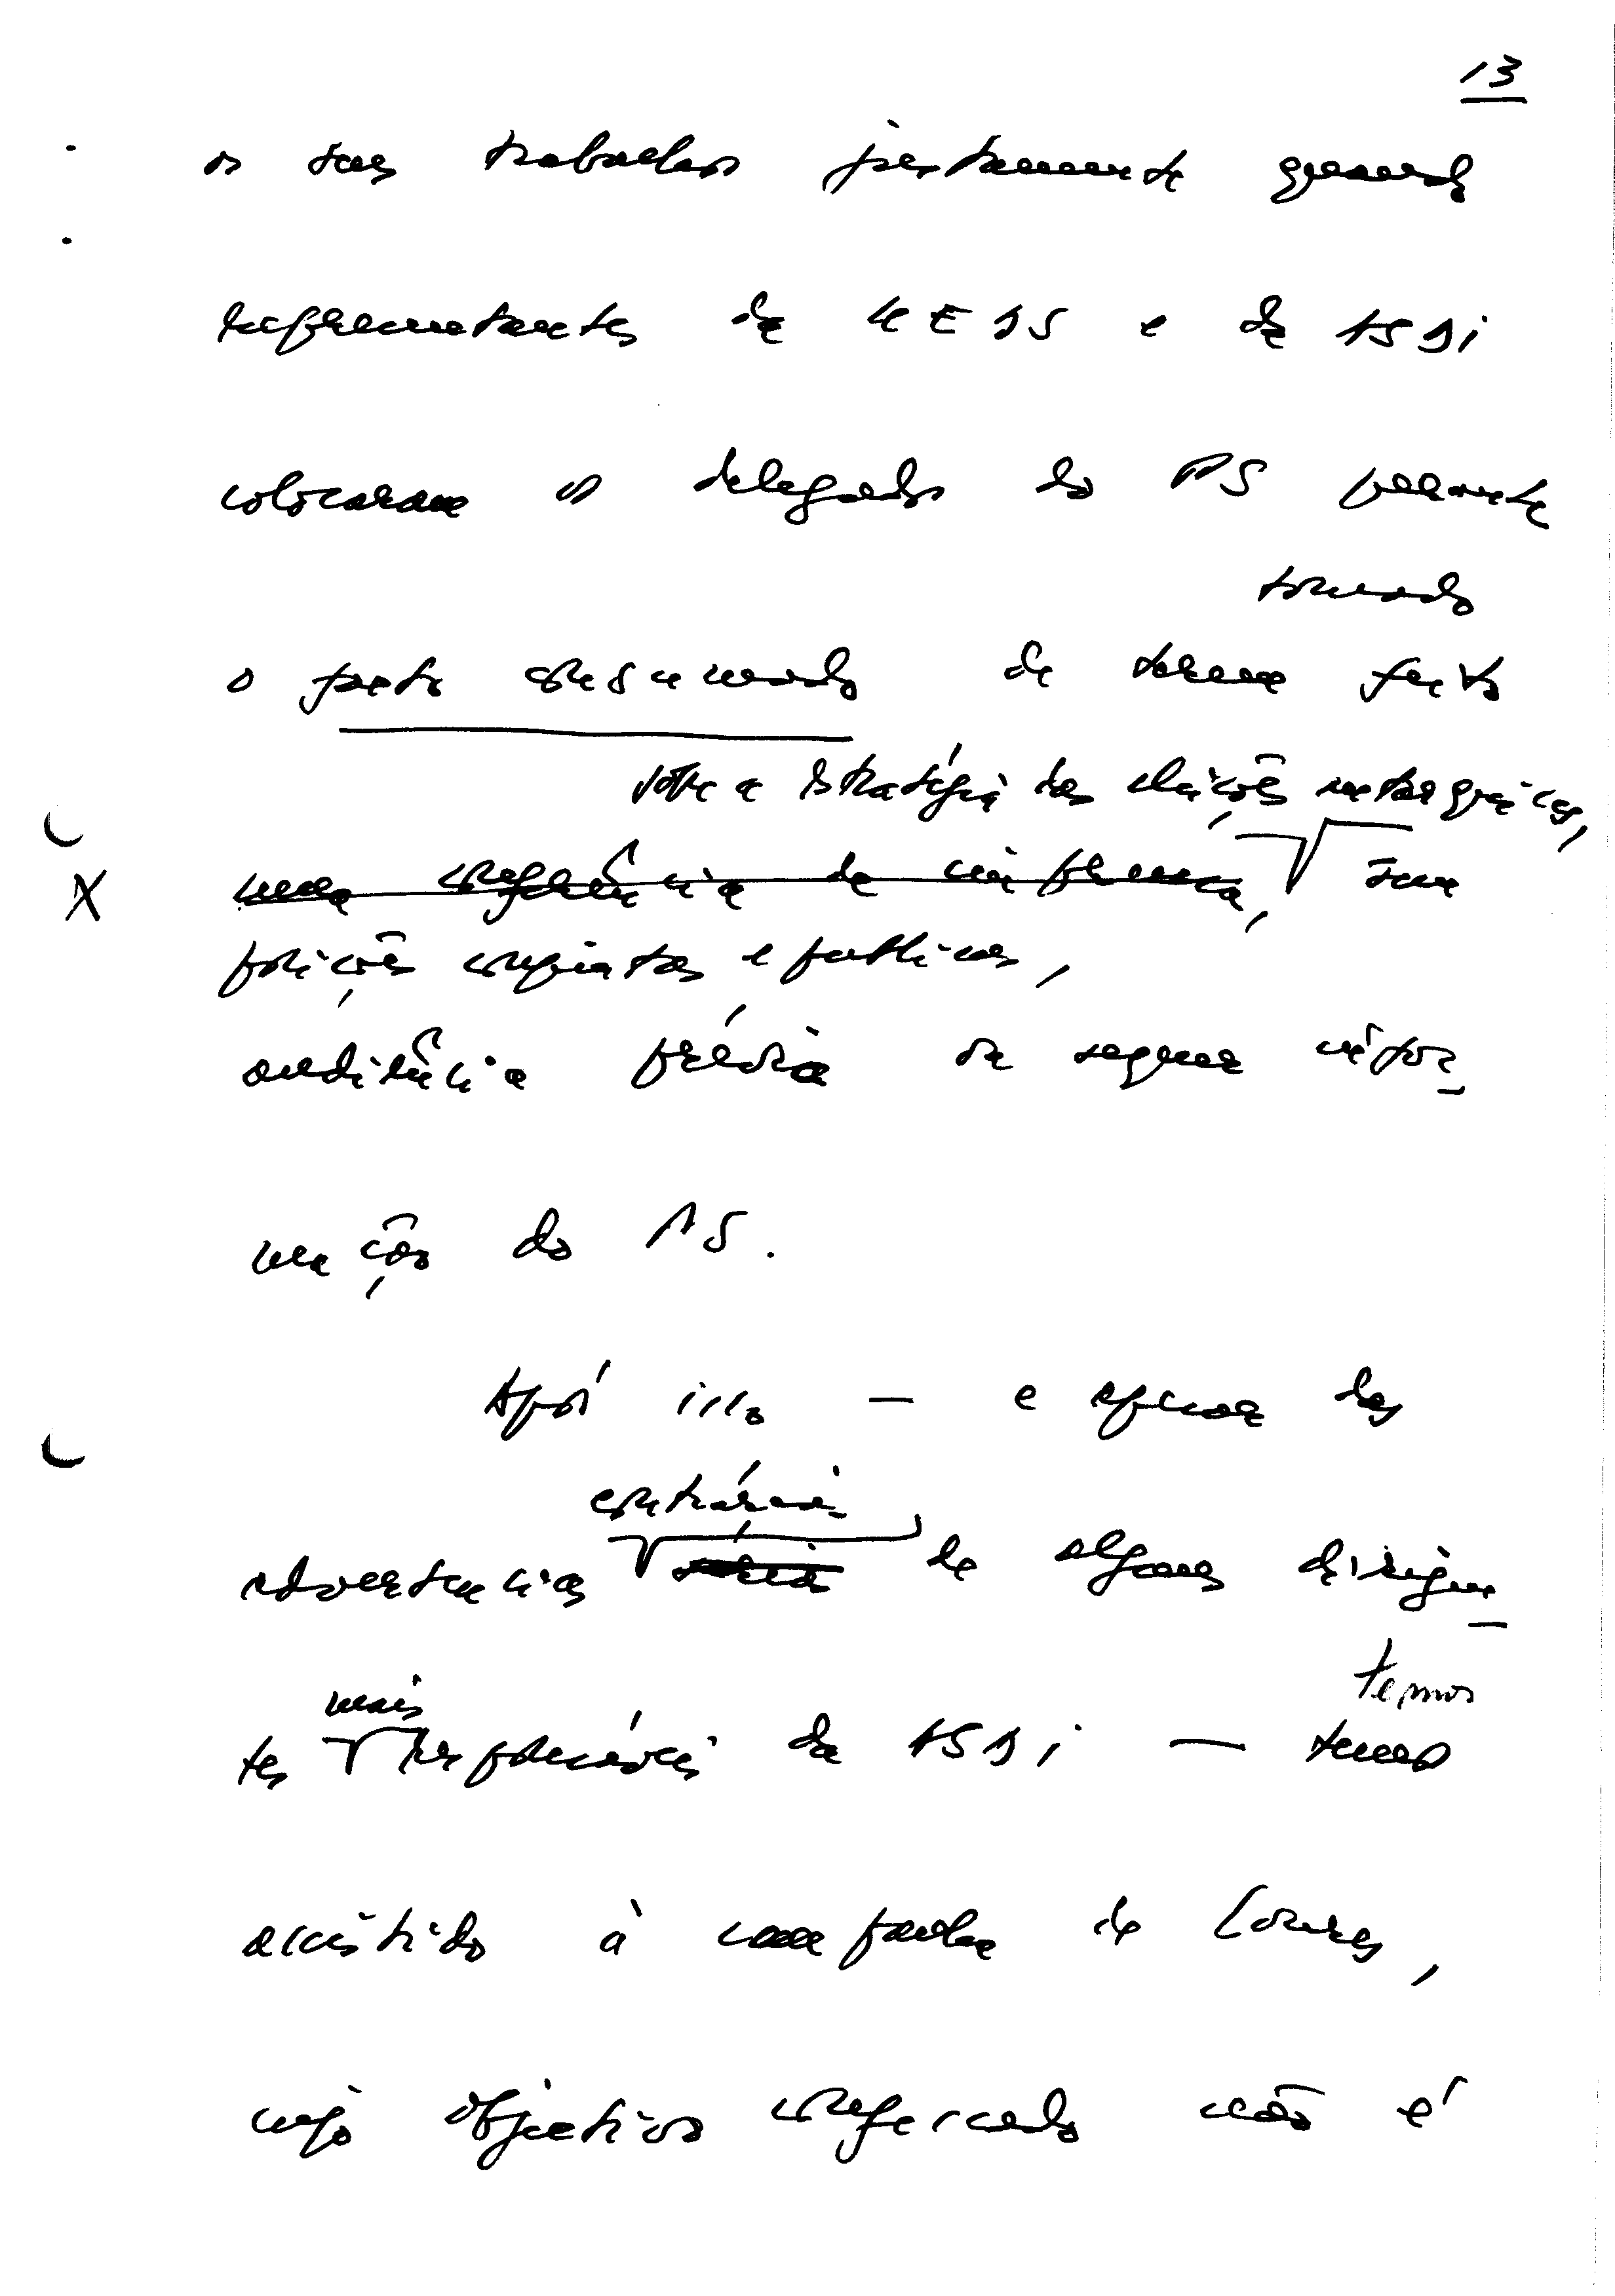 13
os seus trabalhos justamente quando
representantes da UEDS e da ASDI
colocaram os delegados do PS perante
tomado
o facto consumado de terem feito
sobre a estratégia das eleições autárquicas,
uma conferência de imprensa, sem
posições conjuntas e públicas,
audiência prévia ou sequer infor-
mação do PS.
Após isso — e apesar das
contrárias
advertências de alguns dirigen-
temos
mais
tes responsáveis da ASDI — temos
assistido à campanha de Loures,
cujo objectivo confessado não é